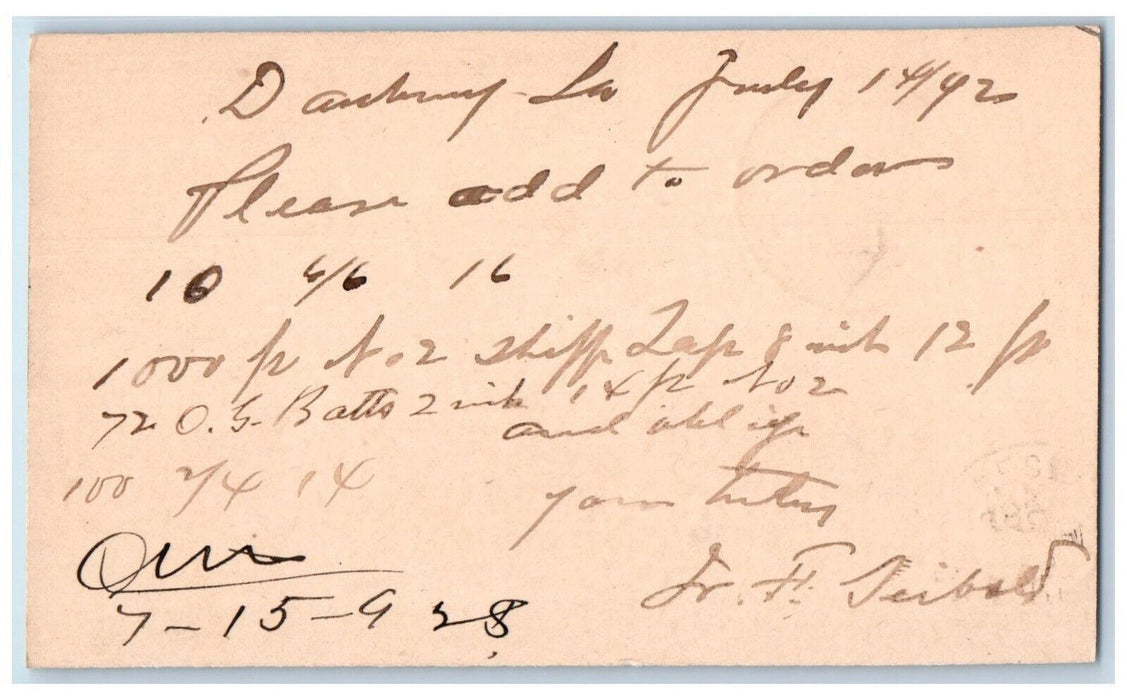 Danbury Ia July 14/92
Please add to order
10 6/6 16
1000 ft No 2 Shipp Lap 8 inch 12 ft
72 O.G. Batts 2 inch 14 ft No 2
and oblige
100 2/4 14
yours
7-15-92
F. Seibold